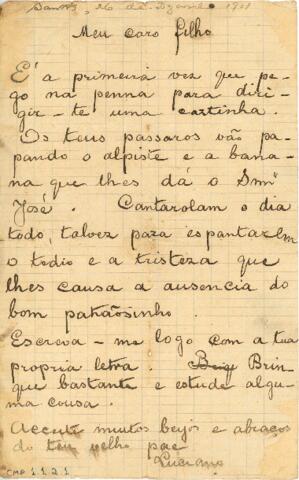 Santos, 26 de Dezembro 1911
Meu caro filho
É a primeira vez que pe-
go na penna para diri-
gir-te uma cartinha.
Os teus passaros vão pa-
pando o alpiste e a bana-
na que lhes dá o Snnr
José. Cantarolam o dia
todo, talvez para espantarem
o tedio e a tristeza que
lhes causa a ausencia do
bom patrãosinho
Escreva-me logo com a tua
propria letra. Brin
que bastante e estude algu-
ma cousa.
Acceite muitos beijos e abraços
do teu velho pae
Luciano
CMP 1.1.2.1